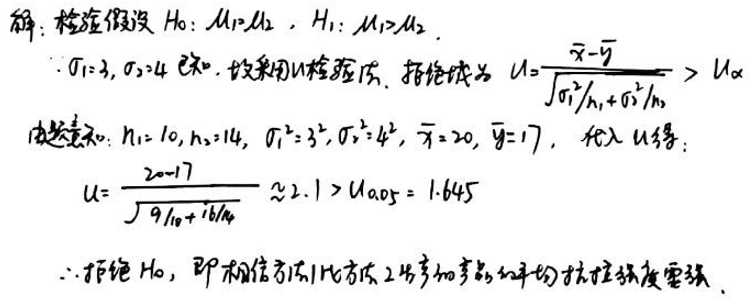 解：检验假设 H₀：μ₁=μ₂，H₁：μ₁>μ₂.
∵σ₁=3, σ₂=4 已知，故采用U检验法，拒绝域为 U=(x̄-ȳ)/√(σ₁²/n₁+σ₂²/n₂) > Uα
由题意知：n₁=10, n₂=14, σ₁²=3², σ₂²=4², x̄=20, ȳ=17，代入U得：
U=(20-17)/√(9/10+16/14) ≈2.1>U0.05=1.645
∴拒绝H₀，即相信方法1比方法2生产的产品的平均抗拉强度要强.